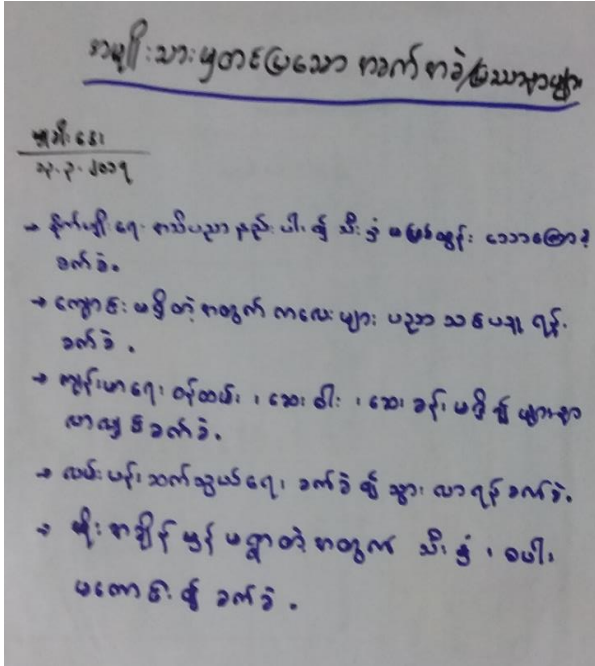 အမျိုးသားမှတင်ပြသော အခက်အခဲ/ပြဿနာများ
၁၃.၃.၂၀၁၇
→ စိုက်ပျိုးရေး အသိပညာနည်းပါး၍ သီးနှံမဖြစ်ထွန်းသောကြောင့်
ခက်ခဲ။
→ ကျောင်းမရှိတဲ့အတွက် ကလေးများ ပညာသင်ယူရန်
ခက်ခဲ။
→ ကျန်းမာရေးဝန်ထမ်း၊ ဆေးဝါး၊ ဆေးခန်းမရှိ၍ များစွာ
ခက်ခဲ။
→ လမ်းပန်းဆက်သွယ်ရေး ခက်ခဲ၍ သွားလာရန်ခက်ခဲ။
→ မိုးအချိန်မှန်မရွာတဲ့အတွက် သီးနှံ၊ စပါး
မကောင်း၍ ခက်ခဲ။